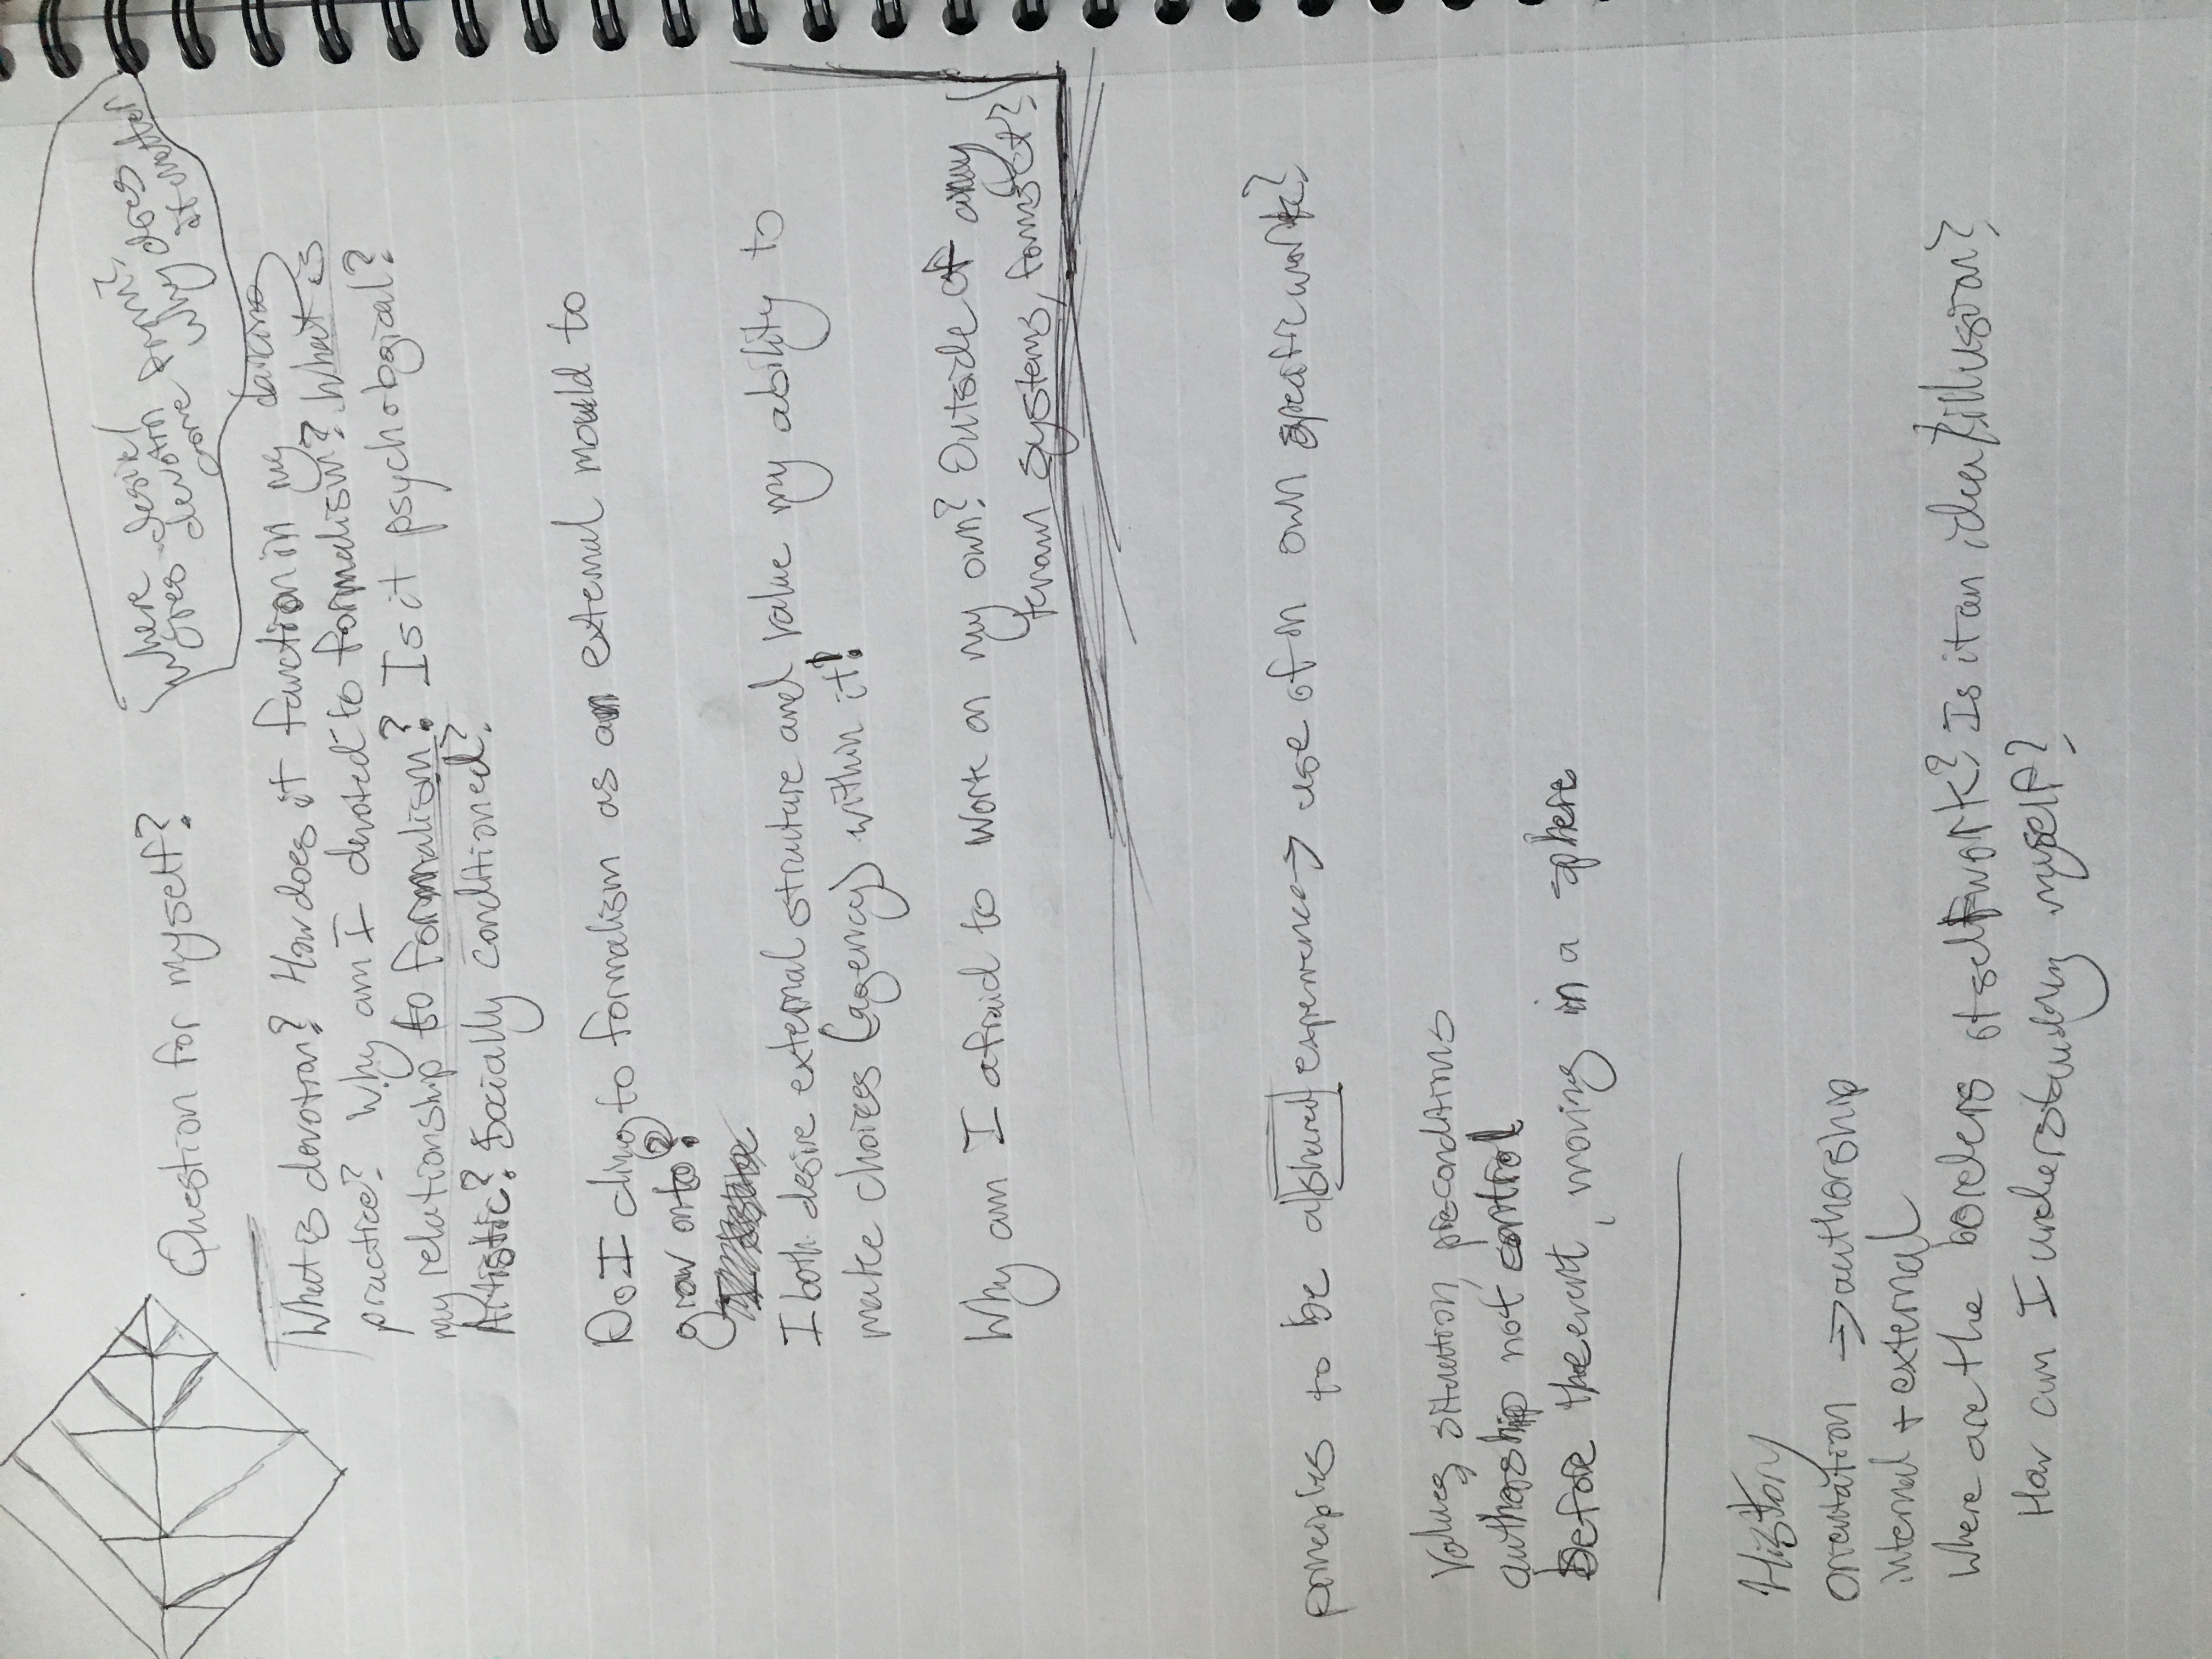 Question for myself?
Where desire
goes devotion
core
Why does
it matter
What is devotion? How does it function in my dance
practice? Why am I devoted to formalism? What is
my relationship to formalism? Is it psychological?
Artistic? Socially conditioned?
Do I cling to formalism as an external mould to
grow onto?
I both desire external structure and value my ability to
make choices (agency) within it!
Why am I afraid to work on my own? Outside of any
systems, forms
principles to be abstracted experience → use of in own creative work?
Values, situation, preconditions
authorship not control
Before the event, moving in a sphere
History
orientation → authorship
internal + external
Where are the borders of self work? Is it an idea/illusion?
How am I understanding myself?